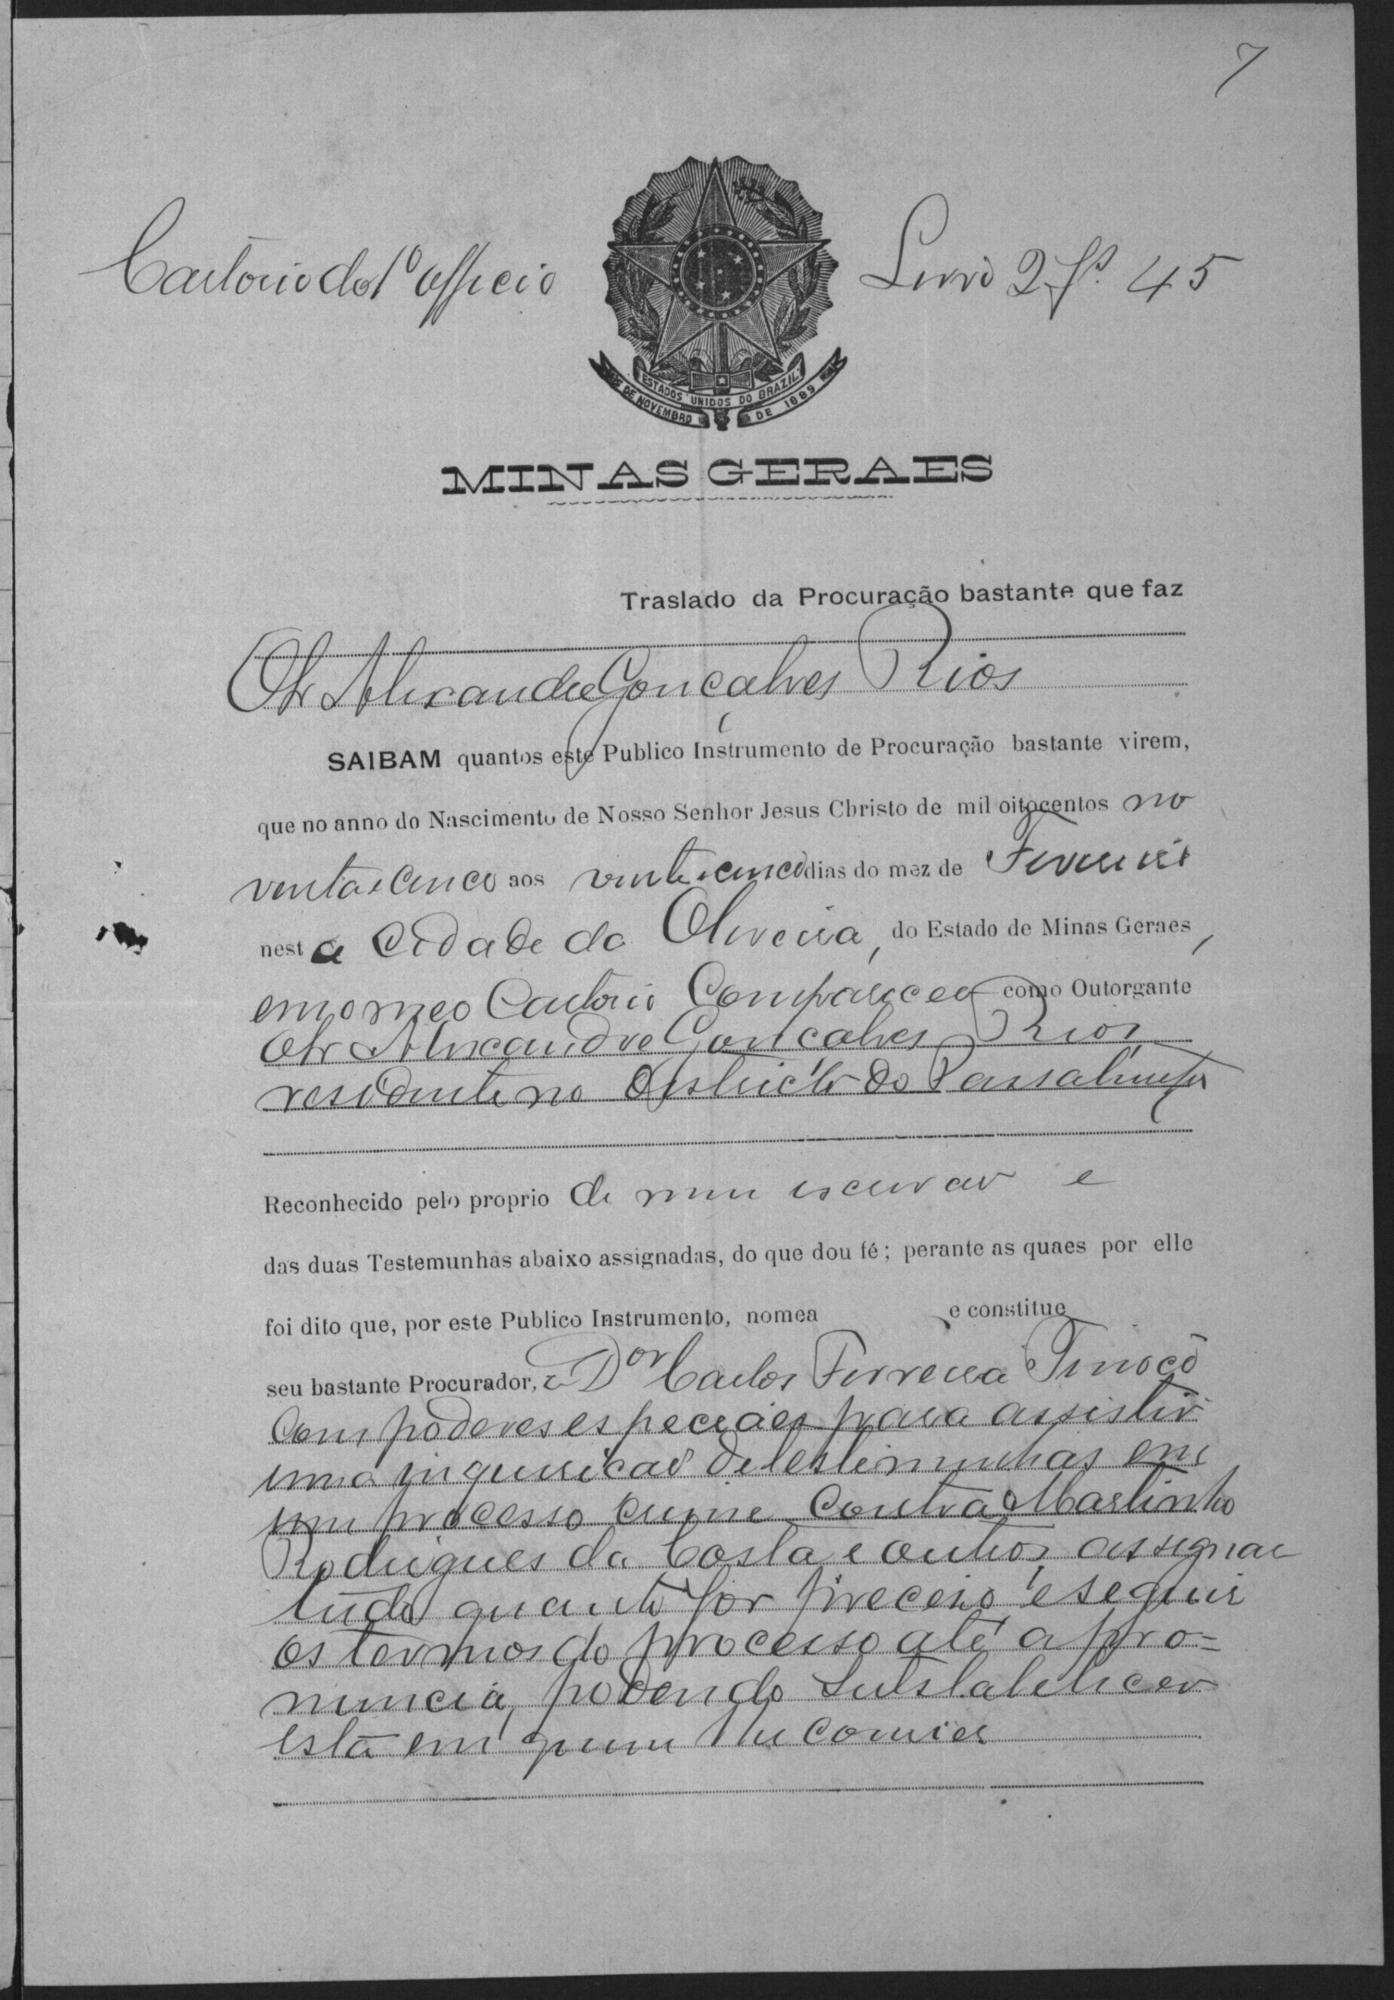 7
Cartorio do 1º officio
Livro 2 fs. 45
ESTADOS UNIDOS DO BRAZIL
15 DE NOVEMBRO DE 1889
MINAS GERAES
Traslado da Procuração bastante que faz
Alexandre Gonçalves Rios
SAIBAM quantos este Publico Instrumento de Procuração bastante virem,
que no anno do Nascimento de Nosso Senhor Jesus Christo de mil oitocentos no
venta e cinco aos vinte e cinco dias do mez de Fevereiro
nesta Cidade da Oliveira, do Estado de Minas Geraes,
em o meo Cartorio Compareceu como Outorgante
Alexandre Gonçalves Rios
residente no districto do Passatempo
Reconhecido pelo proprio de mim escrivão e
das duas Testemunhas abaixo assignadas, do que dou fé; perante as quaes por elle
foi dito que, por este Publico Instrumento, nomea e constitue
seu bastante Procurador, a Dor Carlos Ferreira Tinoco
Com poderes especiaes para assistir
uma inquirição de testimunhas em
um processo crime contra Martinho
Rodrigues da Costa e outros assignar
tudo quanto for preceiso e seguir
os termos do processo até a pro=
nuncia, podendo substalelicer
esta em quem lhe convier